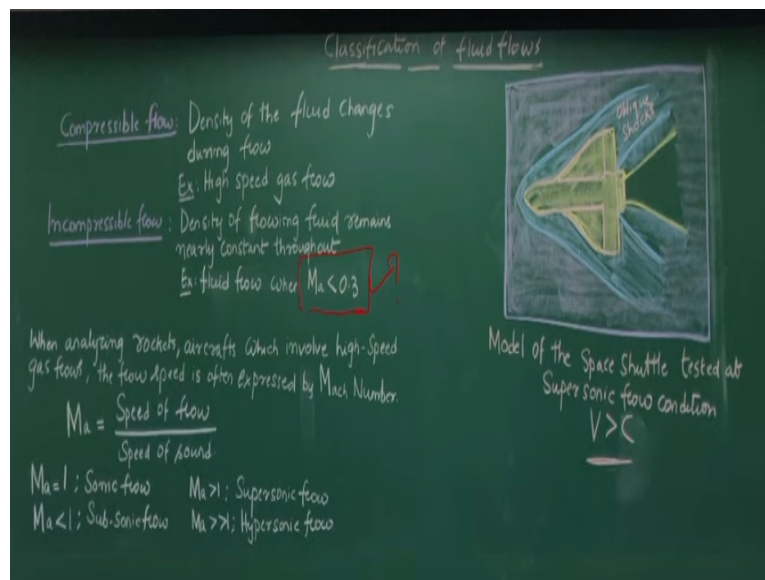 Classification of fluid flows
Compressible flow: Density of the fluid changes
during flow
Ex: High speed gas flow
Incompressible flow: Density of flowing fluid remains
nearly constant throughout
Ex: fluid flow when Ma<0.3
When analyzing rockets, aircrafts which involve high-speed
gas flows, the flow speed is often expressed by Mach Number.
Ma = Speed of flow
Speed of sound
Ma=1; Sonic flow Ma>1; Supersonic flow
Ma<1; Sub-sonic flow Ma>>1; Hypersonic flow
oblique
shocks
Model of the Space Shuttle tested at
Supersonic flow condition
V>C